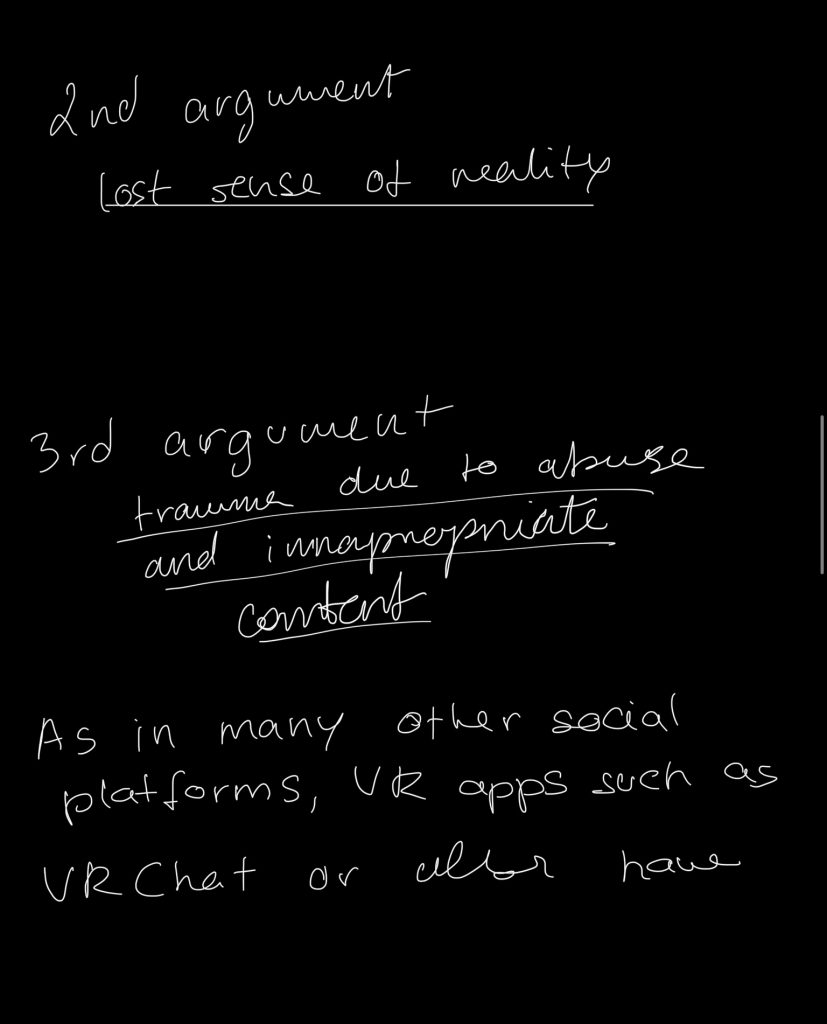 2nd argument
lost sense of reality
3rd argument
trauma due to abuse
and innapropriate
content
As in many other social
platforms, VR apps such as
VRChat or have